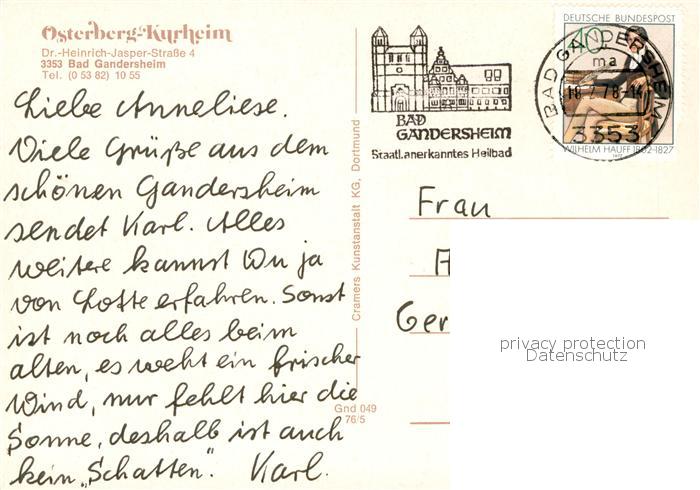 Osterberg-Kurheim
Dr.-Heinrich-Jasper-Straße 4
3353 Bad Gandersheim
Tel. (0 53 82) 10 55
Liebe Anneliese.
Viele Grüße aus dem
schönen Gandersheim
sendet Karl. Alles
weitere kannst Du ja
von Lotte erfahren. Sonst
ist noch alles beim
alten, es weht ein frischer
Wind, nur fehlt hier die
Sonne, deshalb ist auch
kein „Schatten". Karl.
Cramers Kunstanstalt KG, Dortmund
Gnd 049
76/5
BAD
GANDERSHEIM
Staatl. anerkanntes Heilbad
DEUTSCHE BUNDESPOST
40
BAD GANDERSHEIM
ma
18.7.78-14
3353
WILHELM HAUFF 1802-1827
1977
Frau
Ger
privacy protection
Datenschutz